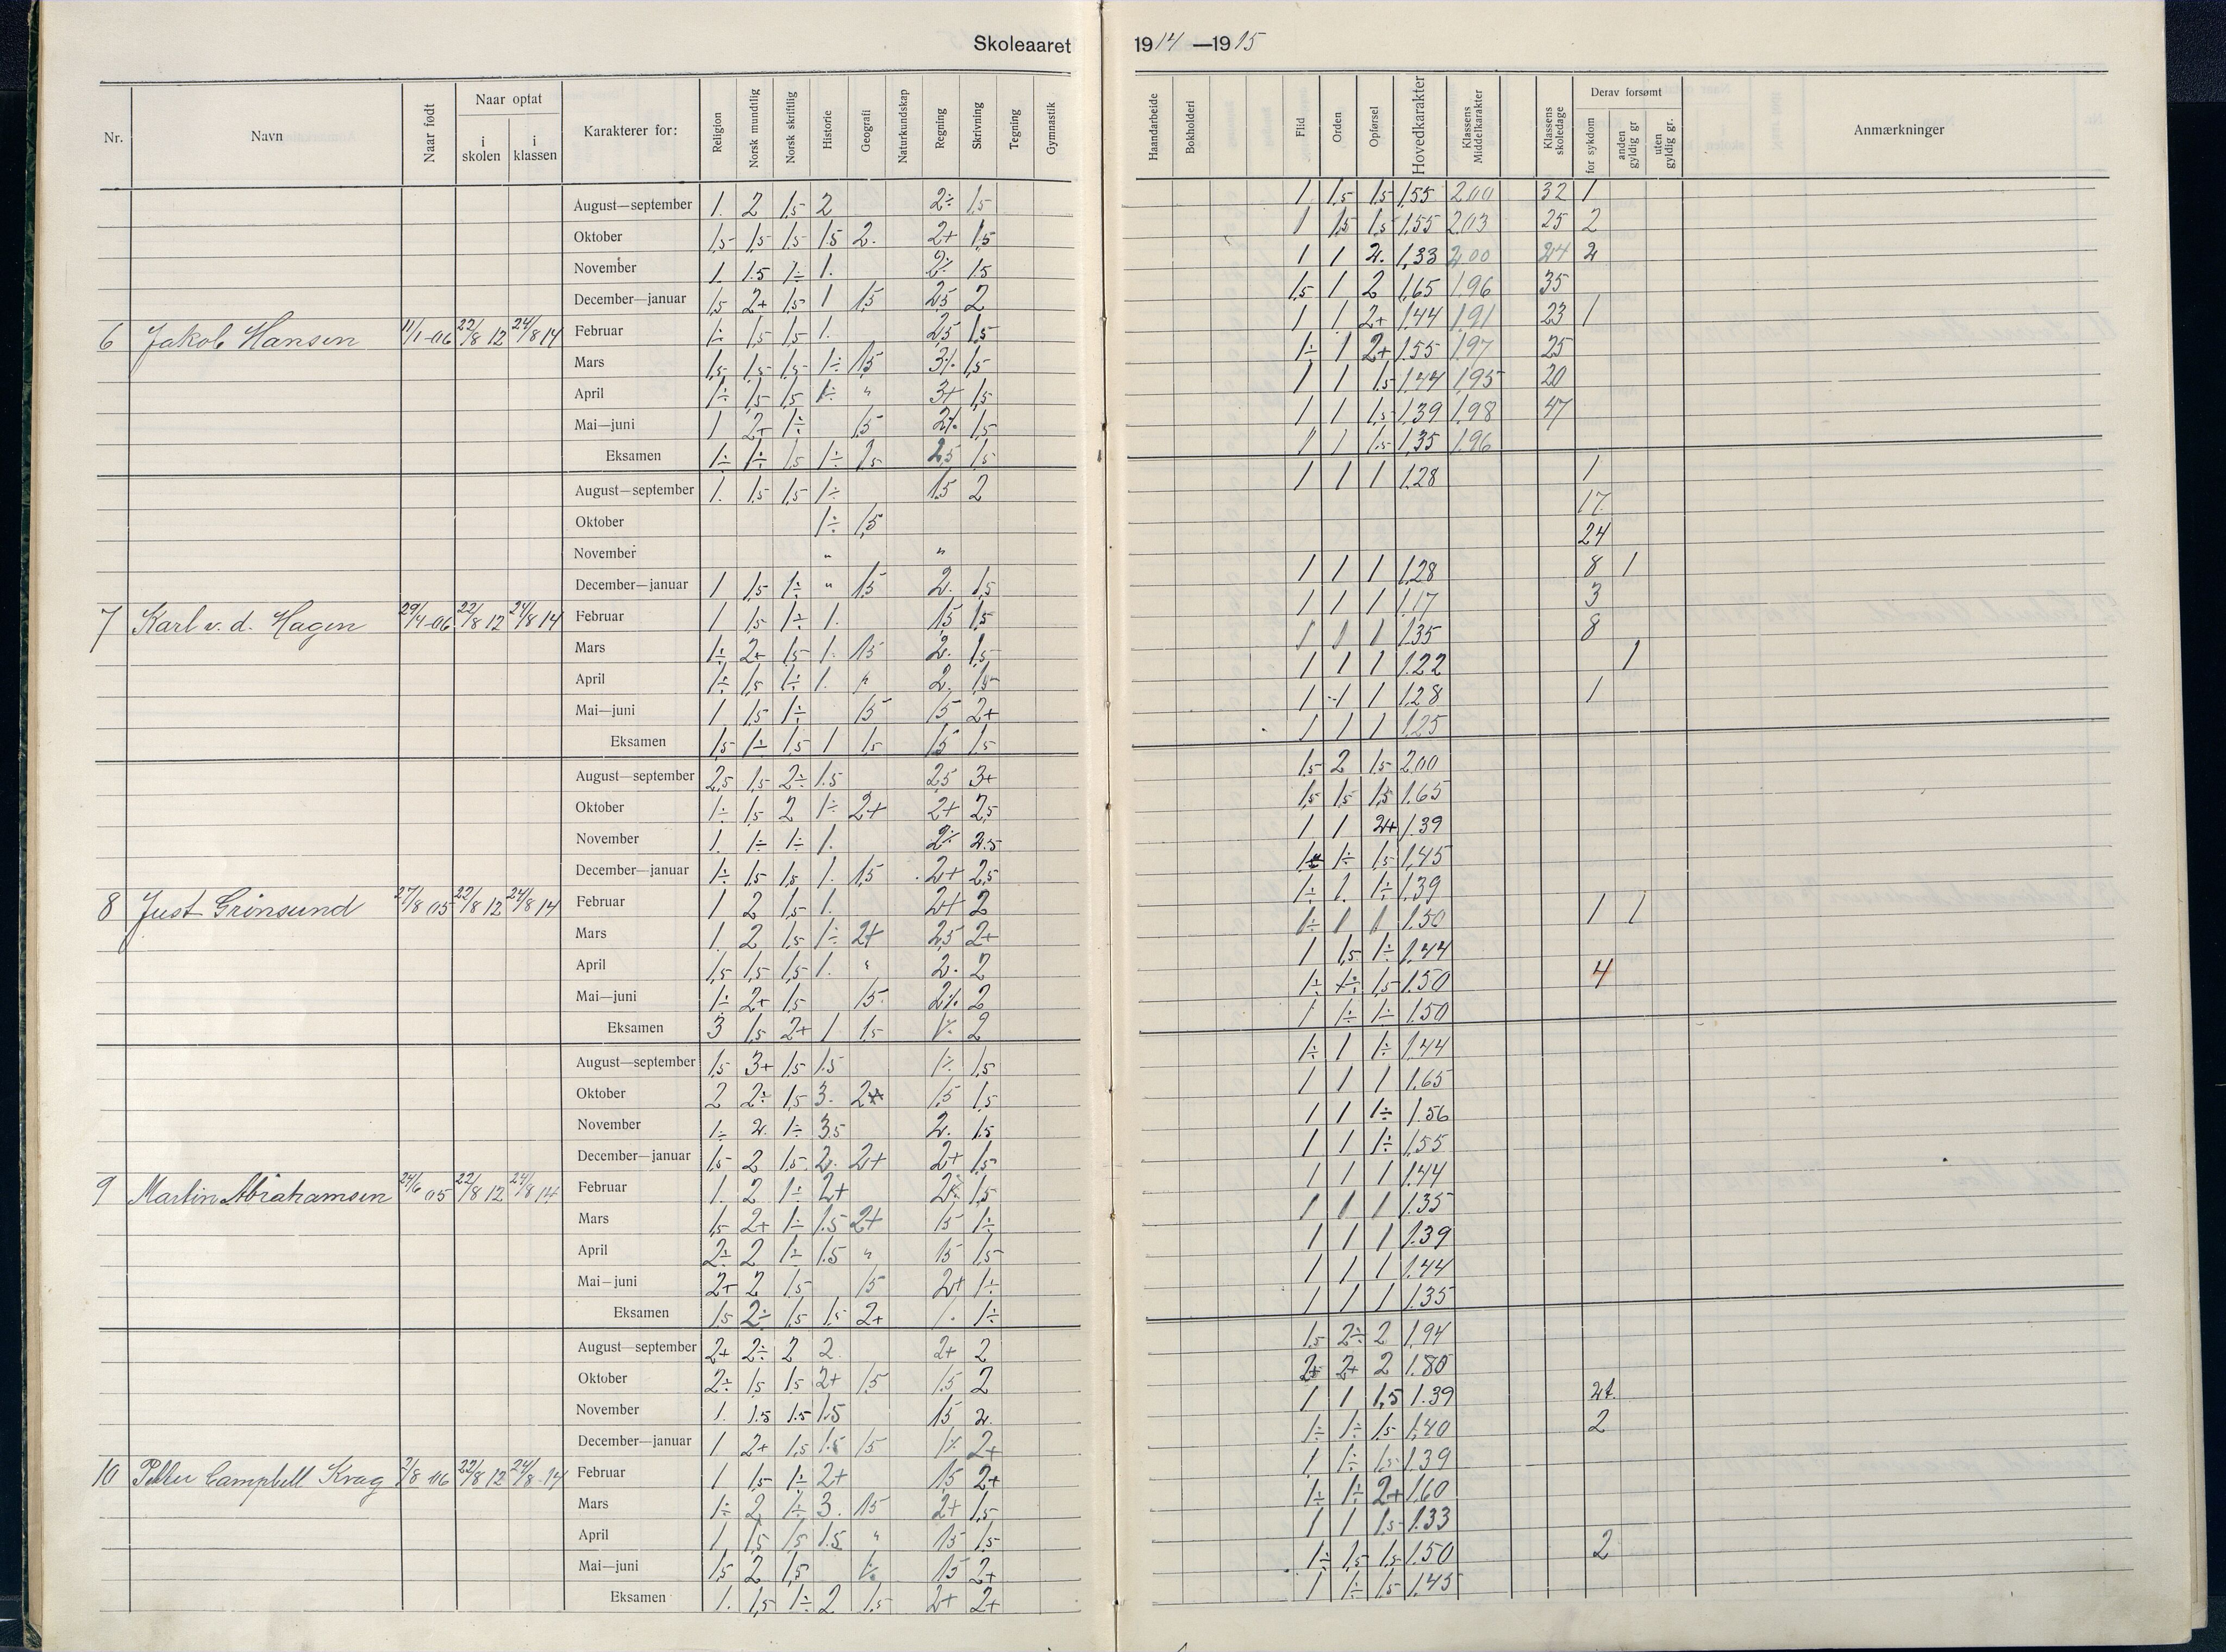 Skoleaaret 1914—1915
Nr. Navn Naar født Naar optat i skolen i klassen Karakterer for: Religion Norsk mundtlig Norsk skriftlig Historie Geografi Naturkundskap Regning Skrivning Tegning Gymnastik Haandarbeide Bokholderi Flid Orden Opførsel Hovedkarakter Klassens Middelkarakter Klassens skoledage Derav forsømt for sykdom anden gyldig gr uten gyldig gr. Anmærkninger
August—september 1. 2 1,5 2 2÷ 1,5 1 1,5 1,5 1,55 2,00 32 1
Oktober 1,5 1,5 1,5 1.5 2. 2+ 1,5 1 1,5 1,5 1,55 2,03 25 2
November 1 1.5 1÷ 1. 2÷ 1.5 1 1 2. 1,33 2,00 24 2
December—januar 1,5 2+ 1,5 1 1,5 2,5 2 1,5 1 2 1,65 1,96 35
6 Jakob Hansen 11/1-06 22/8 12 24/8 14 Februar 1÷ 1,5 1,5 1. 2,5 1,5 1 1 2+ 1,44 1,91 23 1
Mars 1,5 1,5 1,5 1÷ 1,5 3÷ 1,5 1÷ 1 2+ 1.55 1,97 25
April 1÷ 1,5 1,5 1÷ " 3+ 1,5 1 1 1,5 1,44 1,95 20
Mai—juni 1 2+ 1÷ 1,5 2÷ 1,5 1 1 1,5 1,39 1,98 47
Eksamen 1÷ 1÷ 1,5 1÷ 1,5 2,5 1,5 1 1 1,5 1,35 1,96
August—september 1. 1,5 1,5 1÷ 1,5 2 1 1 1 1,28 1
Oktober 1÷ 1,5 17.
November " " 24
December—januar 1 1,5 1÷ " 1,5 2. 1,5 1 1 1 1,28 8 1
7 Karl v. d. Hagen 29/4-06 22/8 12 24/8 14 Februar 1 1,5 1÷ 1. 1,5 1,5 1 1 1 1,17 3
Mars 1÷ 2+ 1,5 1. 1,5 2. 1,5 1 1 1 1,35 8
April 1÷ 1,5 1÷ 1. " 2. 1,5 1 1 1 1.22 1
Mai—juni 1 1,5 1÷ 1,5 1,5 2+ 1 1 1 1,28 1
Eksamen 1,5 1÷ 1,5 1 1,5 1,5 1,5 1 1 1 1,25
August—september 2,5 1,5 2÷ 1.5 2,5 3+ 1,5 2 1,5 2,00
Oktober 1÷ 1,5 2 1÷ 2+ 2+ 2,5 1,5 1,5 1,5 1.65
November 1. 1÷ 1÷ 1. 2÷ 2.5 1 1 2+ 1.39
December—januar 1÷ 1,5 1,5 1. 1,5 2+ 2,5 1÷ 1÷ 1,5 1,45
8 Just Grinsund 27/8 05 22/8 12 24/8 14 Februar 1 2 1,5 1. 2+ 2 1÷ 1. 1÷ 1,39
Mars 1. 2 1,5 1÷ 2+ 2,5 2+ 1÷ 1 1 1.50 1 1
April 1,5 1,5 1,5 1. " 2. 2 1 1,5 1÷ 1,44
Mai—juni 1÷ 2+ 1,5 1,5 2÷ 2 1÷ 1÷ 1,5 1.50 4
Eksamen 3 1,5 2+ 1 1,5 1÷ 2 1 1÷ 1÷ 1.50
August—september 1,5 3+ 1,5 1.5 1÷ 1,5 1÷ 1 1÷ 1,44
Oktober 2 2÷ 1,5 3. 2+ 1,5 1,5 1 1 1 1.65
November 1÷ 2. 1÷ 3.5 2. 1.5 1 1 1÷ 1.56
December—januar 1,5 2 1,5 2. 2+ 2+ 1,5 1 1 1÷ 1,55
9 Martin Abrahamsen 24/6 05 22/8 12 24/8 14 Februar 1. 2 1÷ 2+ 2÷ 1,5 1 1 1 1,44
Mars 1,5 2+ 1÷ 1.5 2+ 1,5 1÷ 1 1 1 1.35
April 2÷ 2 1÷ 1.5 " 1,5 1,5 1 1 1 1.39
Mai—juni 2+ 2 1,5 1,5 2+ 1÷ 1 1 1 1.44
Eksamen 1,5 2÷ 1,5 1,5 2+ 1. 1÷ 1 1 1 1.35
August—september 2+ 2÷ 2 2. 2+ 2 1,5 2÷ 2 1,94
Oktober 2÷ 1,5 1,5 2+ 1,5 1.5 2 2+ 2+ 2 1.80
November 1. 1.5 1.5 1.5 1,5 2. 1 1 1,5 1.39
December—januar 1 2+ 1,5 1.5 1,5 1÷ 2+ 1÷ 1÷ 1,5 1,40 2
10 Campbell Krag 22/8 12 24/8 14 Februar 1 1,5 1÷ 2+ 1,5 2+ 1 1÷ 1,5 1.39
Mars 1÷ 2 1÷ 3. 1,5 2+ 1,5 1÷ 1÷ 2+ 1,60
April 1 1,5 1,5 1.5 " 1,5 1,5 1 1 1,5 1.33
Mai—juni 1,5 2 1,5 1÷ 1,5 2+ 1÷ 1,5 1,5 1.50 2
Eksamen 1. 1,5 1÷ 2 1,5 2+ 2+ 1 1÷ 1,5 1,45